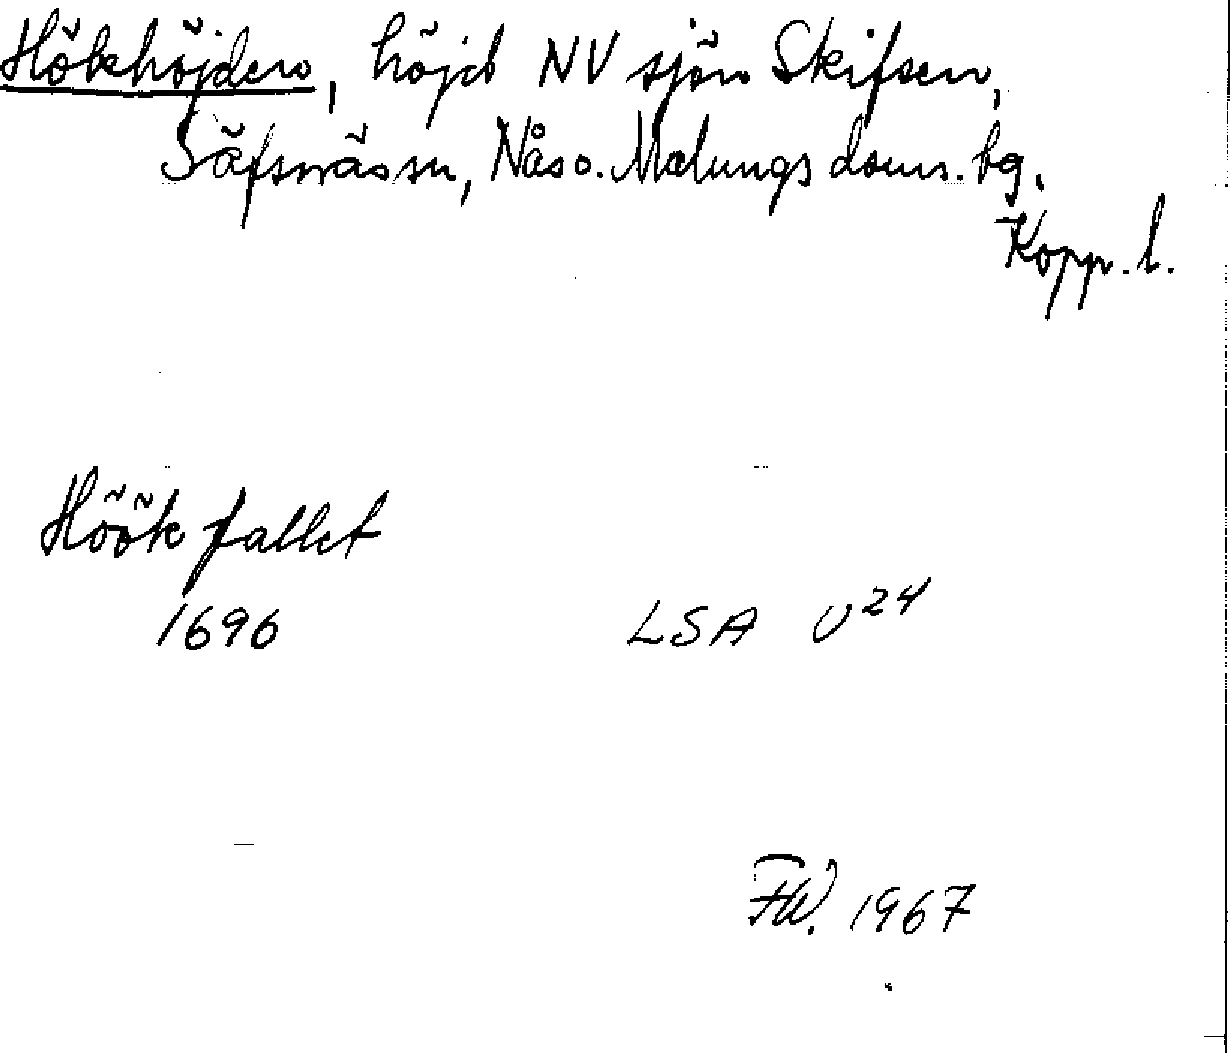 Hökhöjden, höjd NV sjön Skifsen,
Säfsnäs sn, Nås o. Malungs doms. bg.
Kopp. l.
Höök fallet
1696 LSA U24
FW. 1967